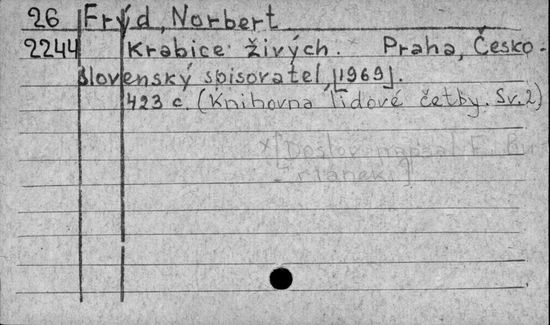 26 Frýd, Norbert
2244 Krabice živých. Praha, Česko-
slovenský spisovatel, [1969].
423 c. (Knihovna lidové četby. Sv. 2)
[Doslov napsal F. Bu-
riánek]